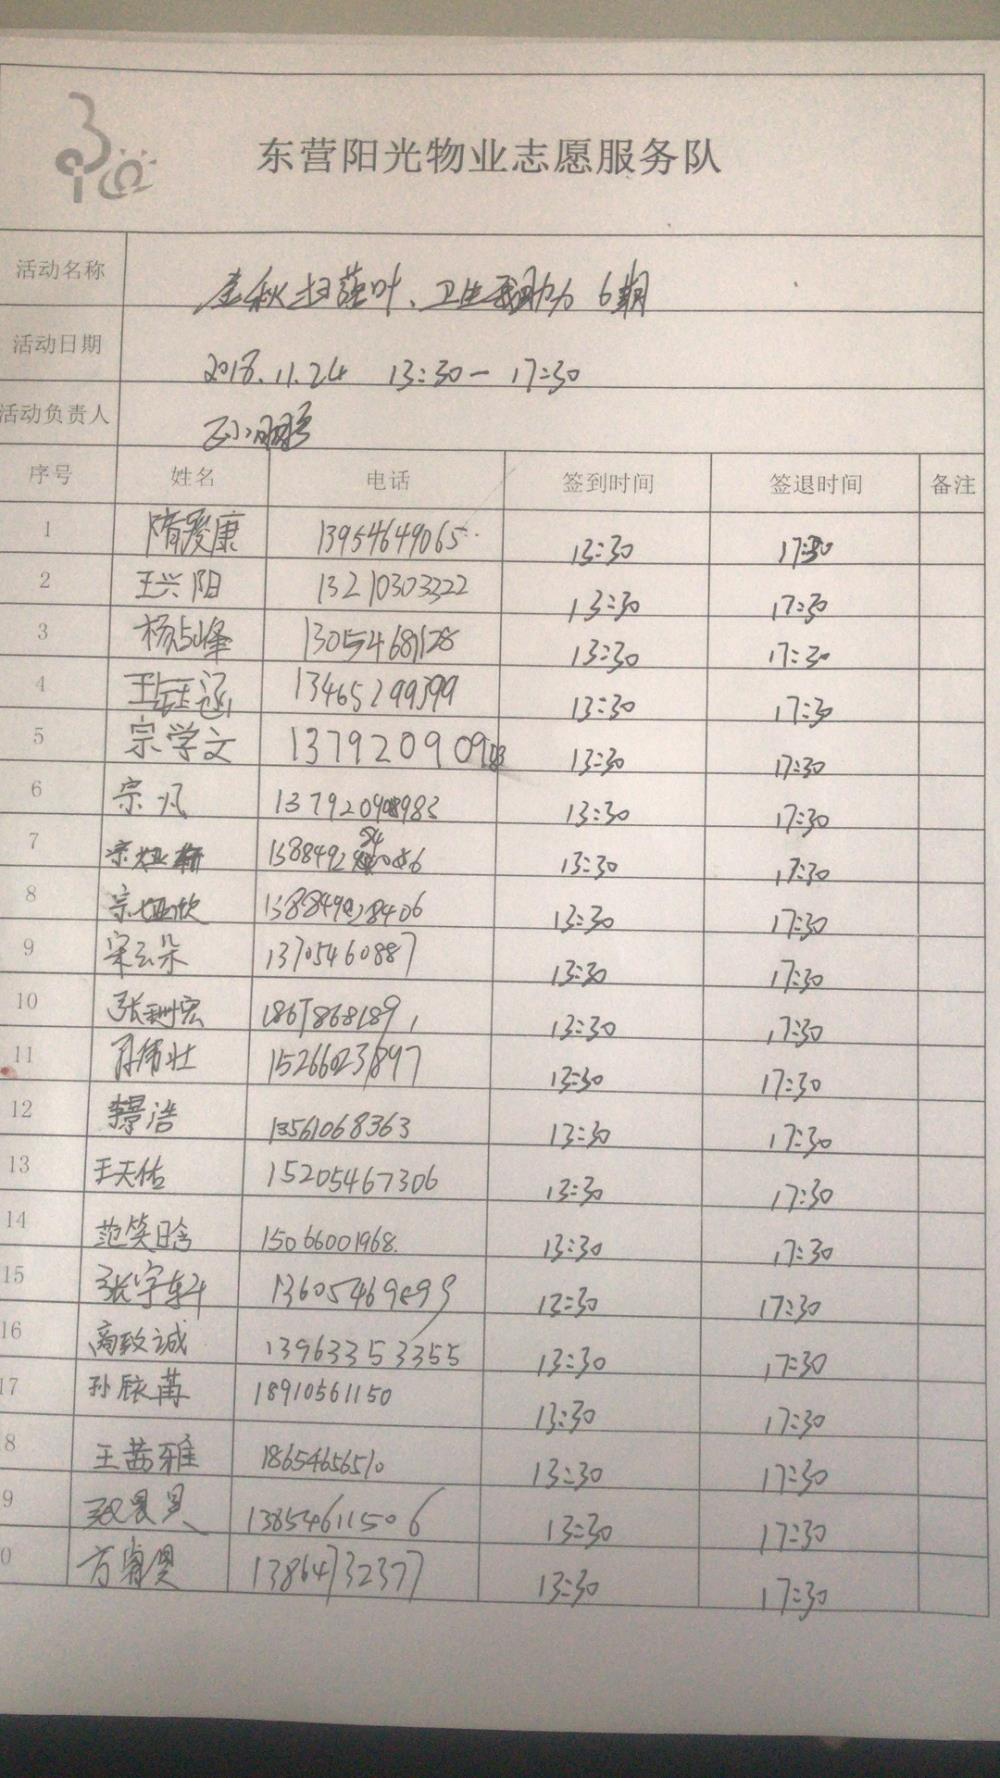 东营阳光物业志愿服务队
活动名称 扫落叶、卫生我助力 6期
活动日期 2018.11.24 13:30— 17:30
活动负责人
序号 姓名 电话 签到时间 签退时间 备注
1 隋俊康 13954649065 13:30 17:30
2 王兴阳 13210303322 13:30 17:30
3 13054681128 13:30 17:30
4 王钰涵 13465299399 13:30 17:30
5 宗学文 13:30 17:30
6 宗凡 13:30 17:30
7 13:30 17:30
8 13:30 17:30
9 宋云朵 13705460887 13:30 17:30
10 13:30 17:30
11 15266231897 13:30 17:30
12 李景浩 13561068363 13:30 17:30
13 王天佑 15205467306 13:30 17:30
14 范笑晗 15066001968 13:30 17:30
15 张宇轩 13:30 17:30
16 商致诚 13963353355 13:30 17:30
17 18910561150 13:30 17:30
8 王茜雅 18654656510 13:30 17:30
9 13854611506 13:30 17:30
0 13864732377 13:30 17:30